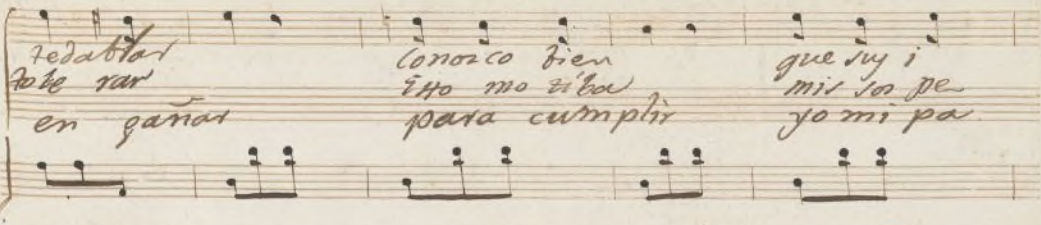 zedablar conozco bien que suy i
tole rar esto mo tiba mis sos pe
en gañar para cumplir yo mi pa